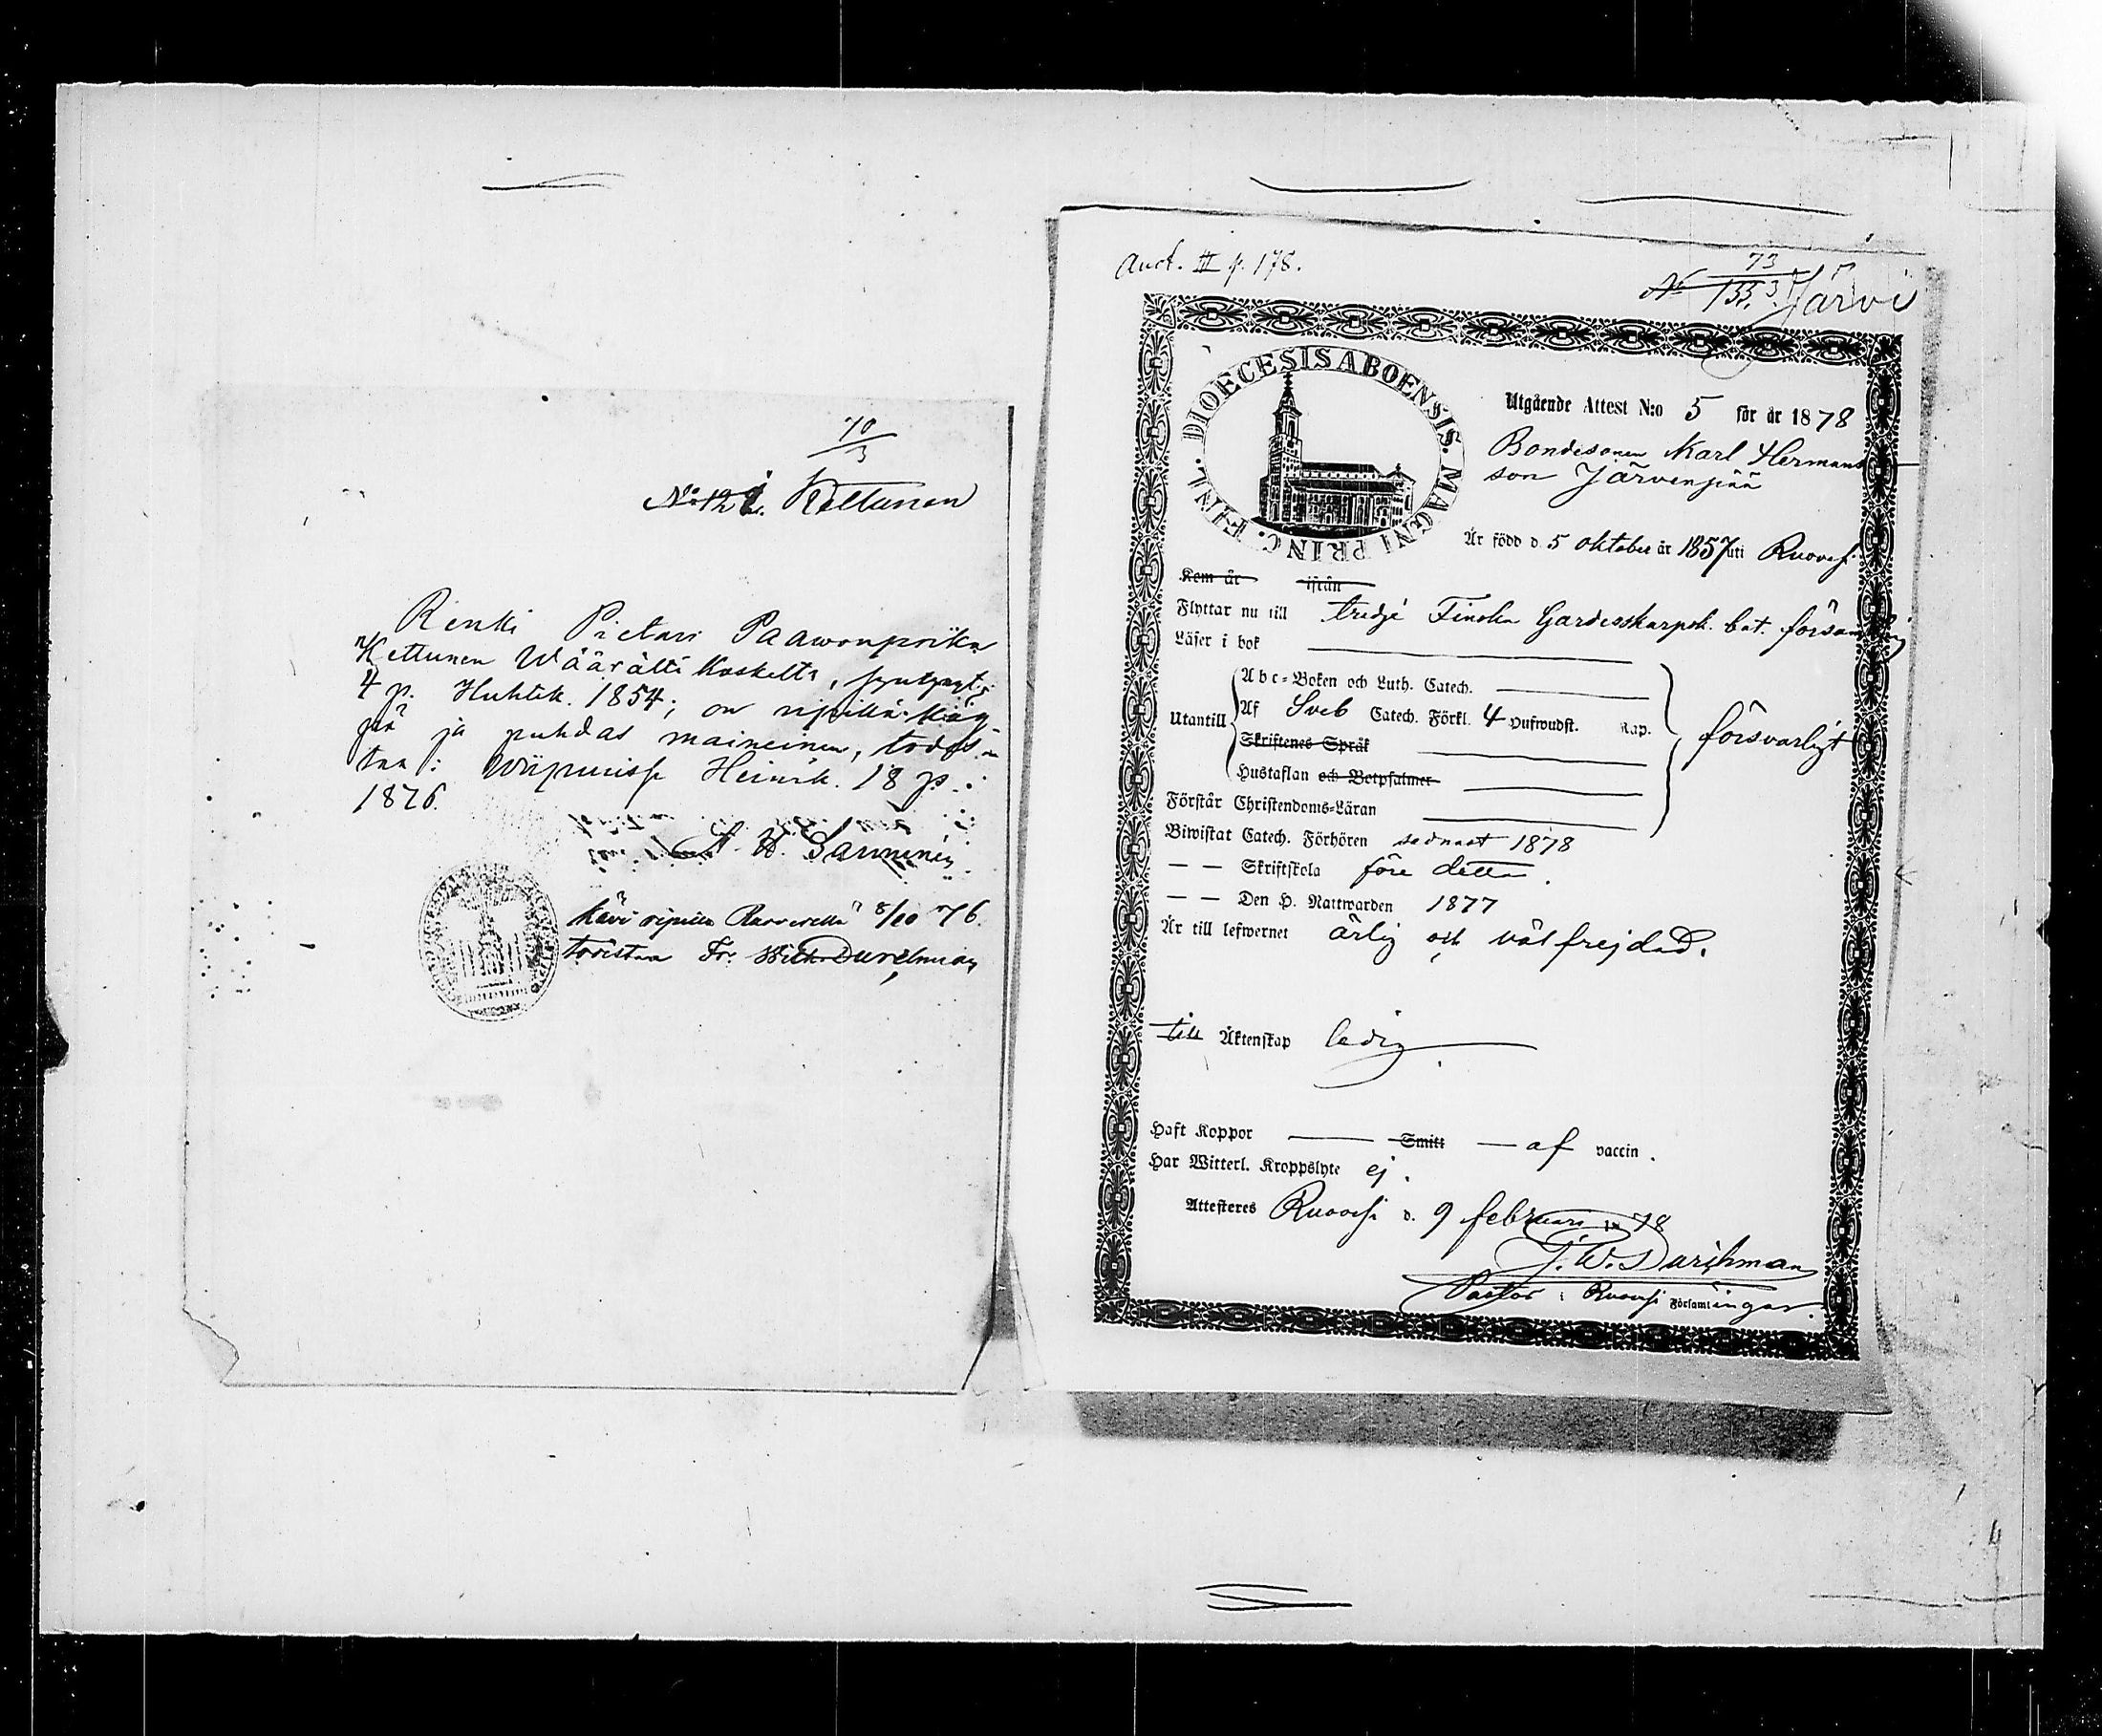 70
3
Kettunen
Renki Pietari Paawonpoika
Kettunen Wäärälti Koskelta, syntynyt
4 p. Huhtik. 1854; on ripillä käy-
pä ja puhdas maineinen, todis-
taa: Wiipurissa Heinäk. 18 p.
1876.
käwi ripillä Ruowedellä 8/10 76.
todistaa Fr. Wilh. Durchman
Auct. III p. 178.
73
3
N 133. Järvi
DIOECESIS ABOENSIS. MAGNI PRINC. FINL.
Utgående Attest N:o 5 för år 1878
Bondesonen Karl Hermans
son Järvenpää
Är född d. 5 oktober år 1857 uti Ruovesi
Kom år ifrån
Flyttar nu till tredje Finska Gardesskarpsk. bat. församling
Läser i bok
Utantill
Abc-Boken och Luth. Catech.
Af Sveb Catech. Förkl. 4 Hufwudst. Kap.
Skriftenes Språk
Hustaflan och Botpsalmer
försvarligt
Förstår Christendoms-Läran
Biwistat Catech. Förhören sednast 1878
— — Skriftskola före detta.
— — Den H. Nattwarden 1877
Är till lefwernet ärlig och välfrejdad.
till Äktenskap ledig
Haft Koppor Smitt — af vaccin.
Har Witterl. Kroppslyte ej.
Attesteres Ruovesi d. 9 februari 1878
F. W. Durchman
Pastor i Ruovesi Församlingar.